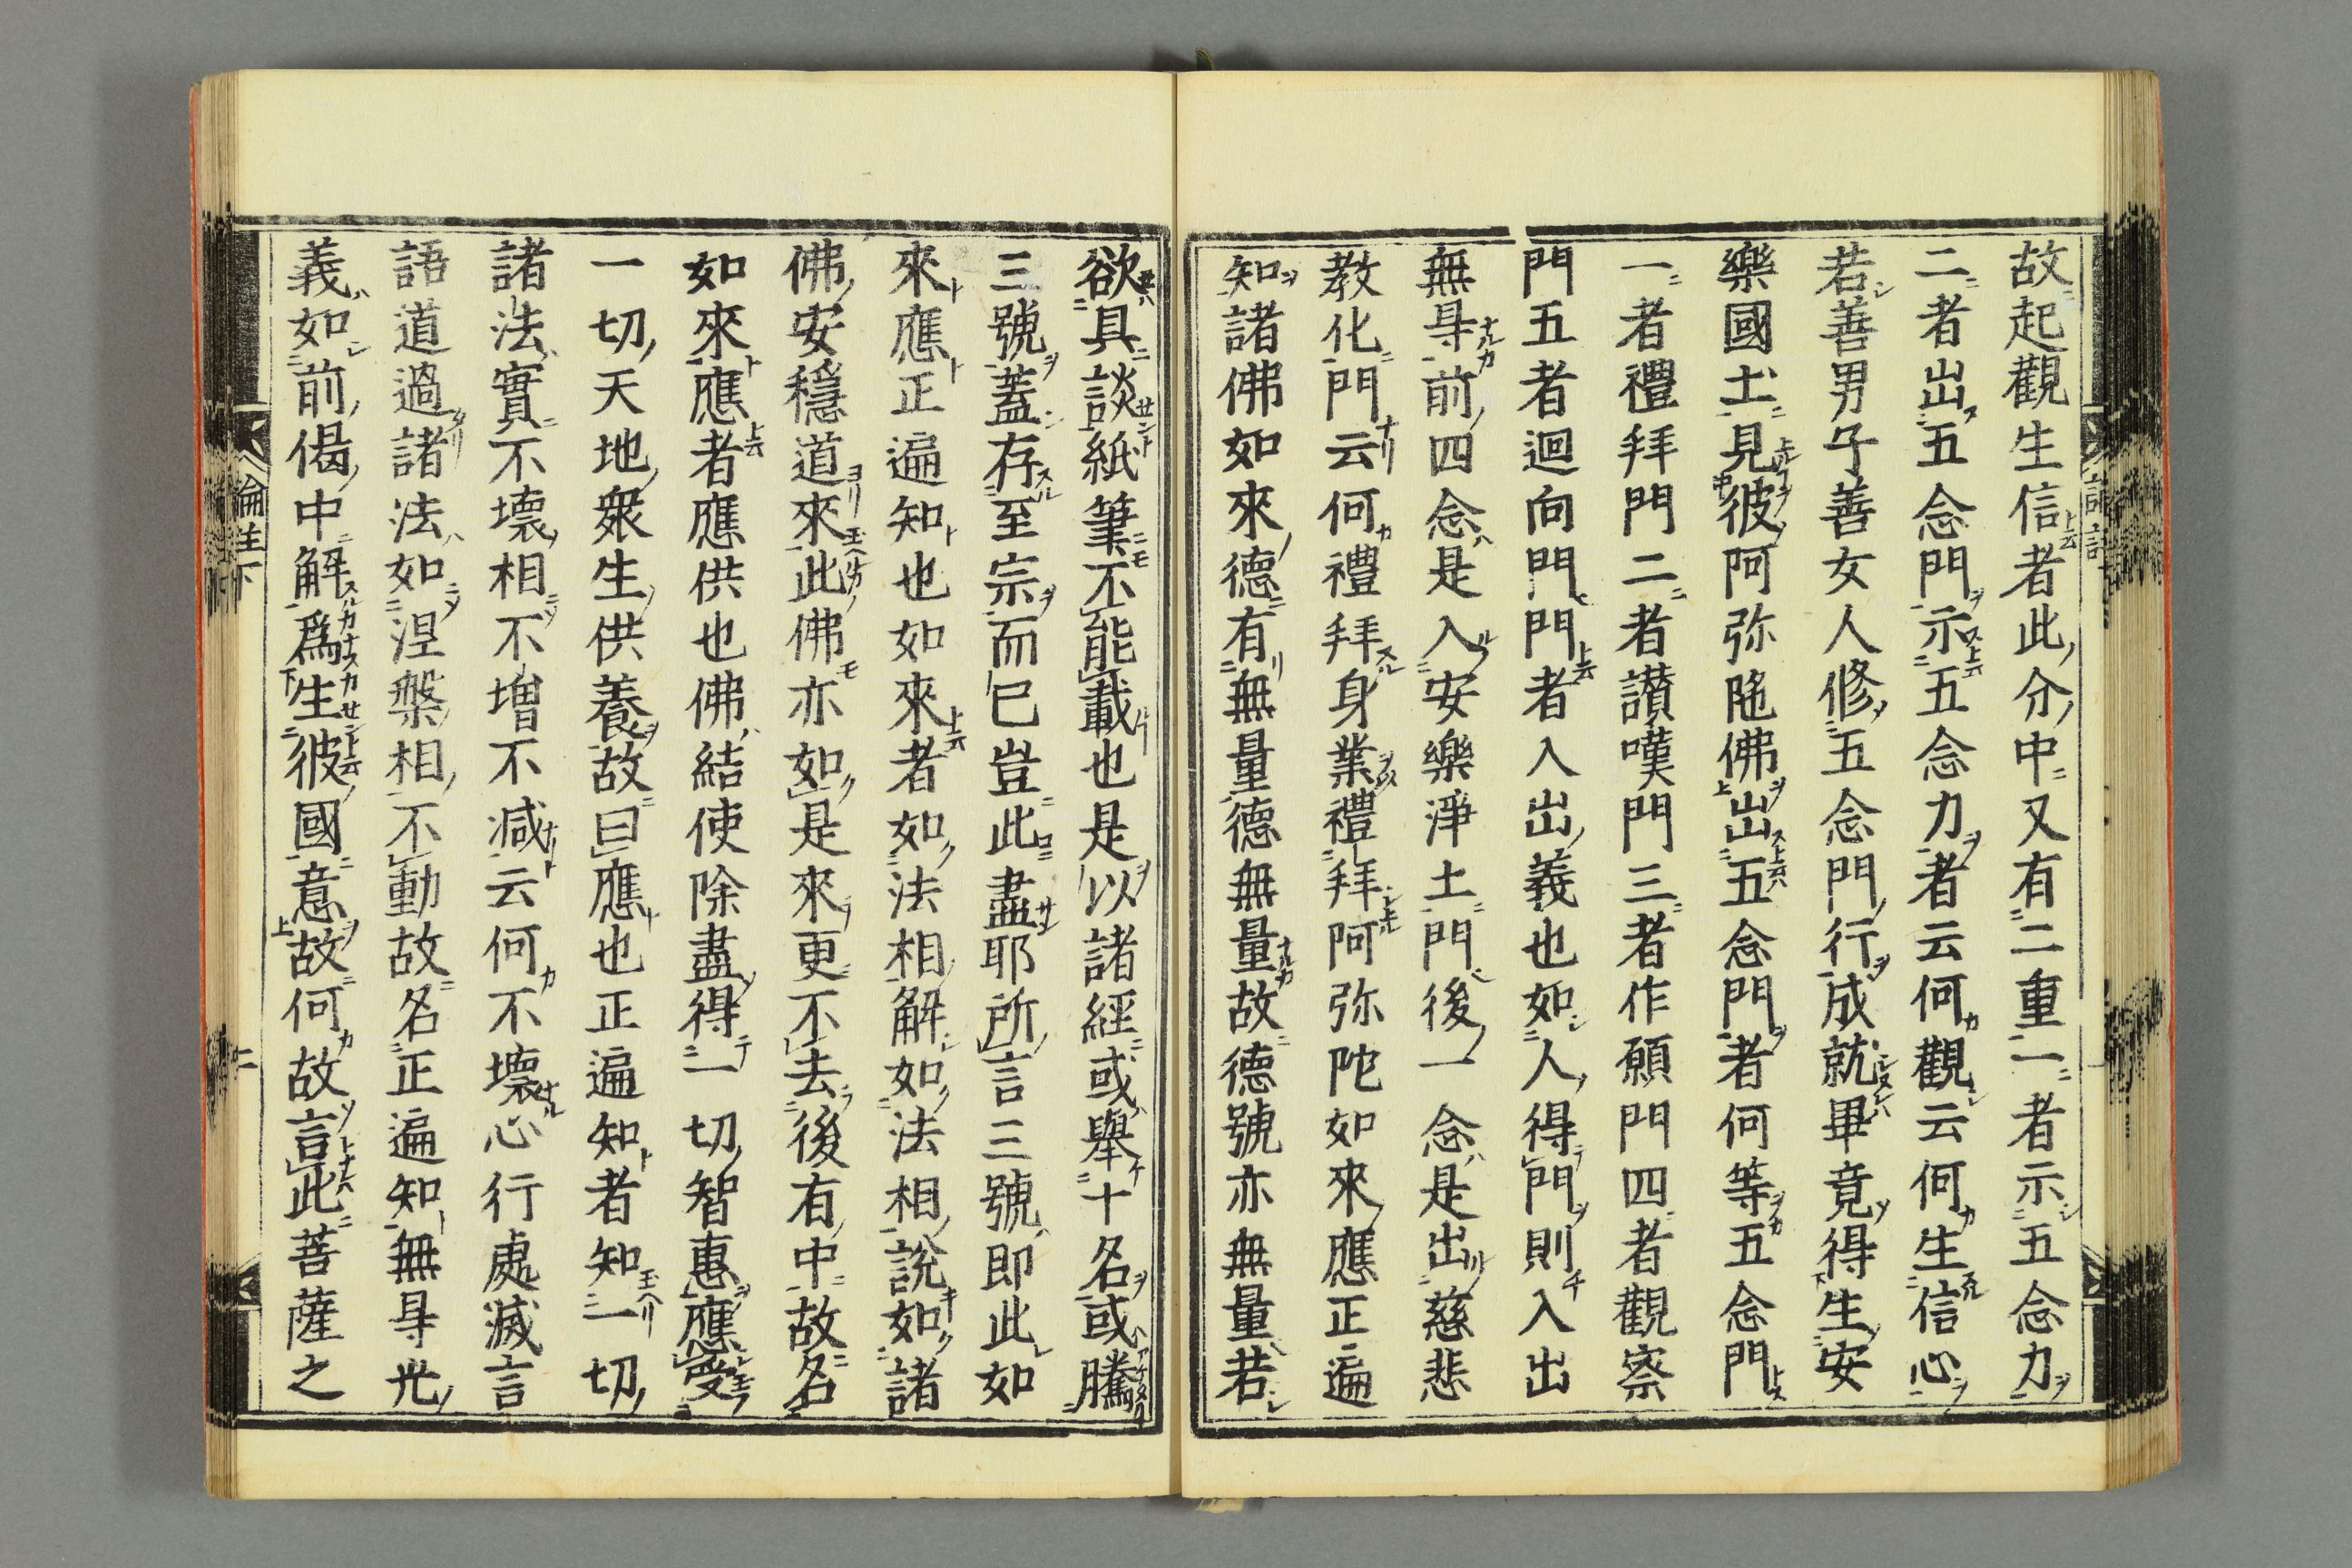 故起觀生信者此分中又有二重一者示五念力
二者出五念門示五念力者云何觀云何生信心
若善男子善女人修五念門行成就畢竟得生安
樂國土見彼阿弥陁佛出五念門者何等五念門
一者禮拜門二者讃嘆門三者作願門四者觀察
門五者迴向門門者入出義也如人得門則入出
無㝵前四念是入安樂淨土門後一念是出慈悲
教化門云何禮拜身業禮拜阿弥陀如來應正遍
知諸佛如來德有無量德無量故德號亦無量若
欲具談紙筆不能載也是以諸經或舉十名或騰
三號蓋存至宗而已豈此盡耶所言三號即此如
來應正遍知也如來者如法相解如法相說如諸
佛安穩道來此佛亦如是來更不去後有中故名
如來應者應供也佛結使除盡得一切智惠應受
一切天地衆生供養故曰應也正遍知者知一切
諸法實不壞相不增不减云何不壞心行處滅言
語道過諸法如涅槃相不動故名正遍知無㝵光
義如前偈中解爲生彼國意故何故言此菩薩之
論註下
二